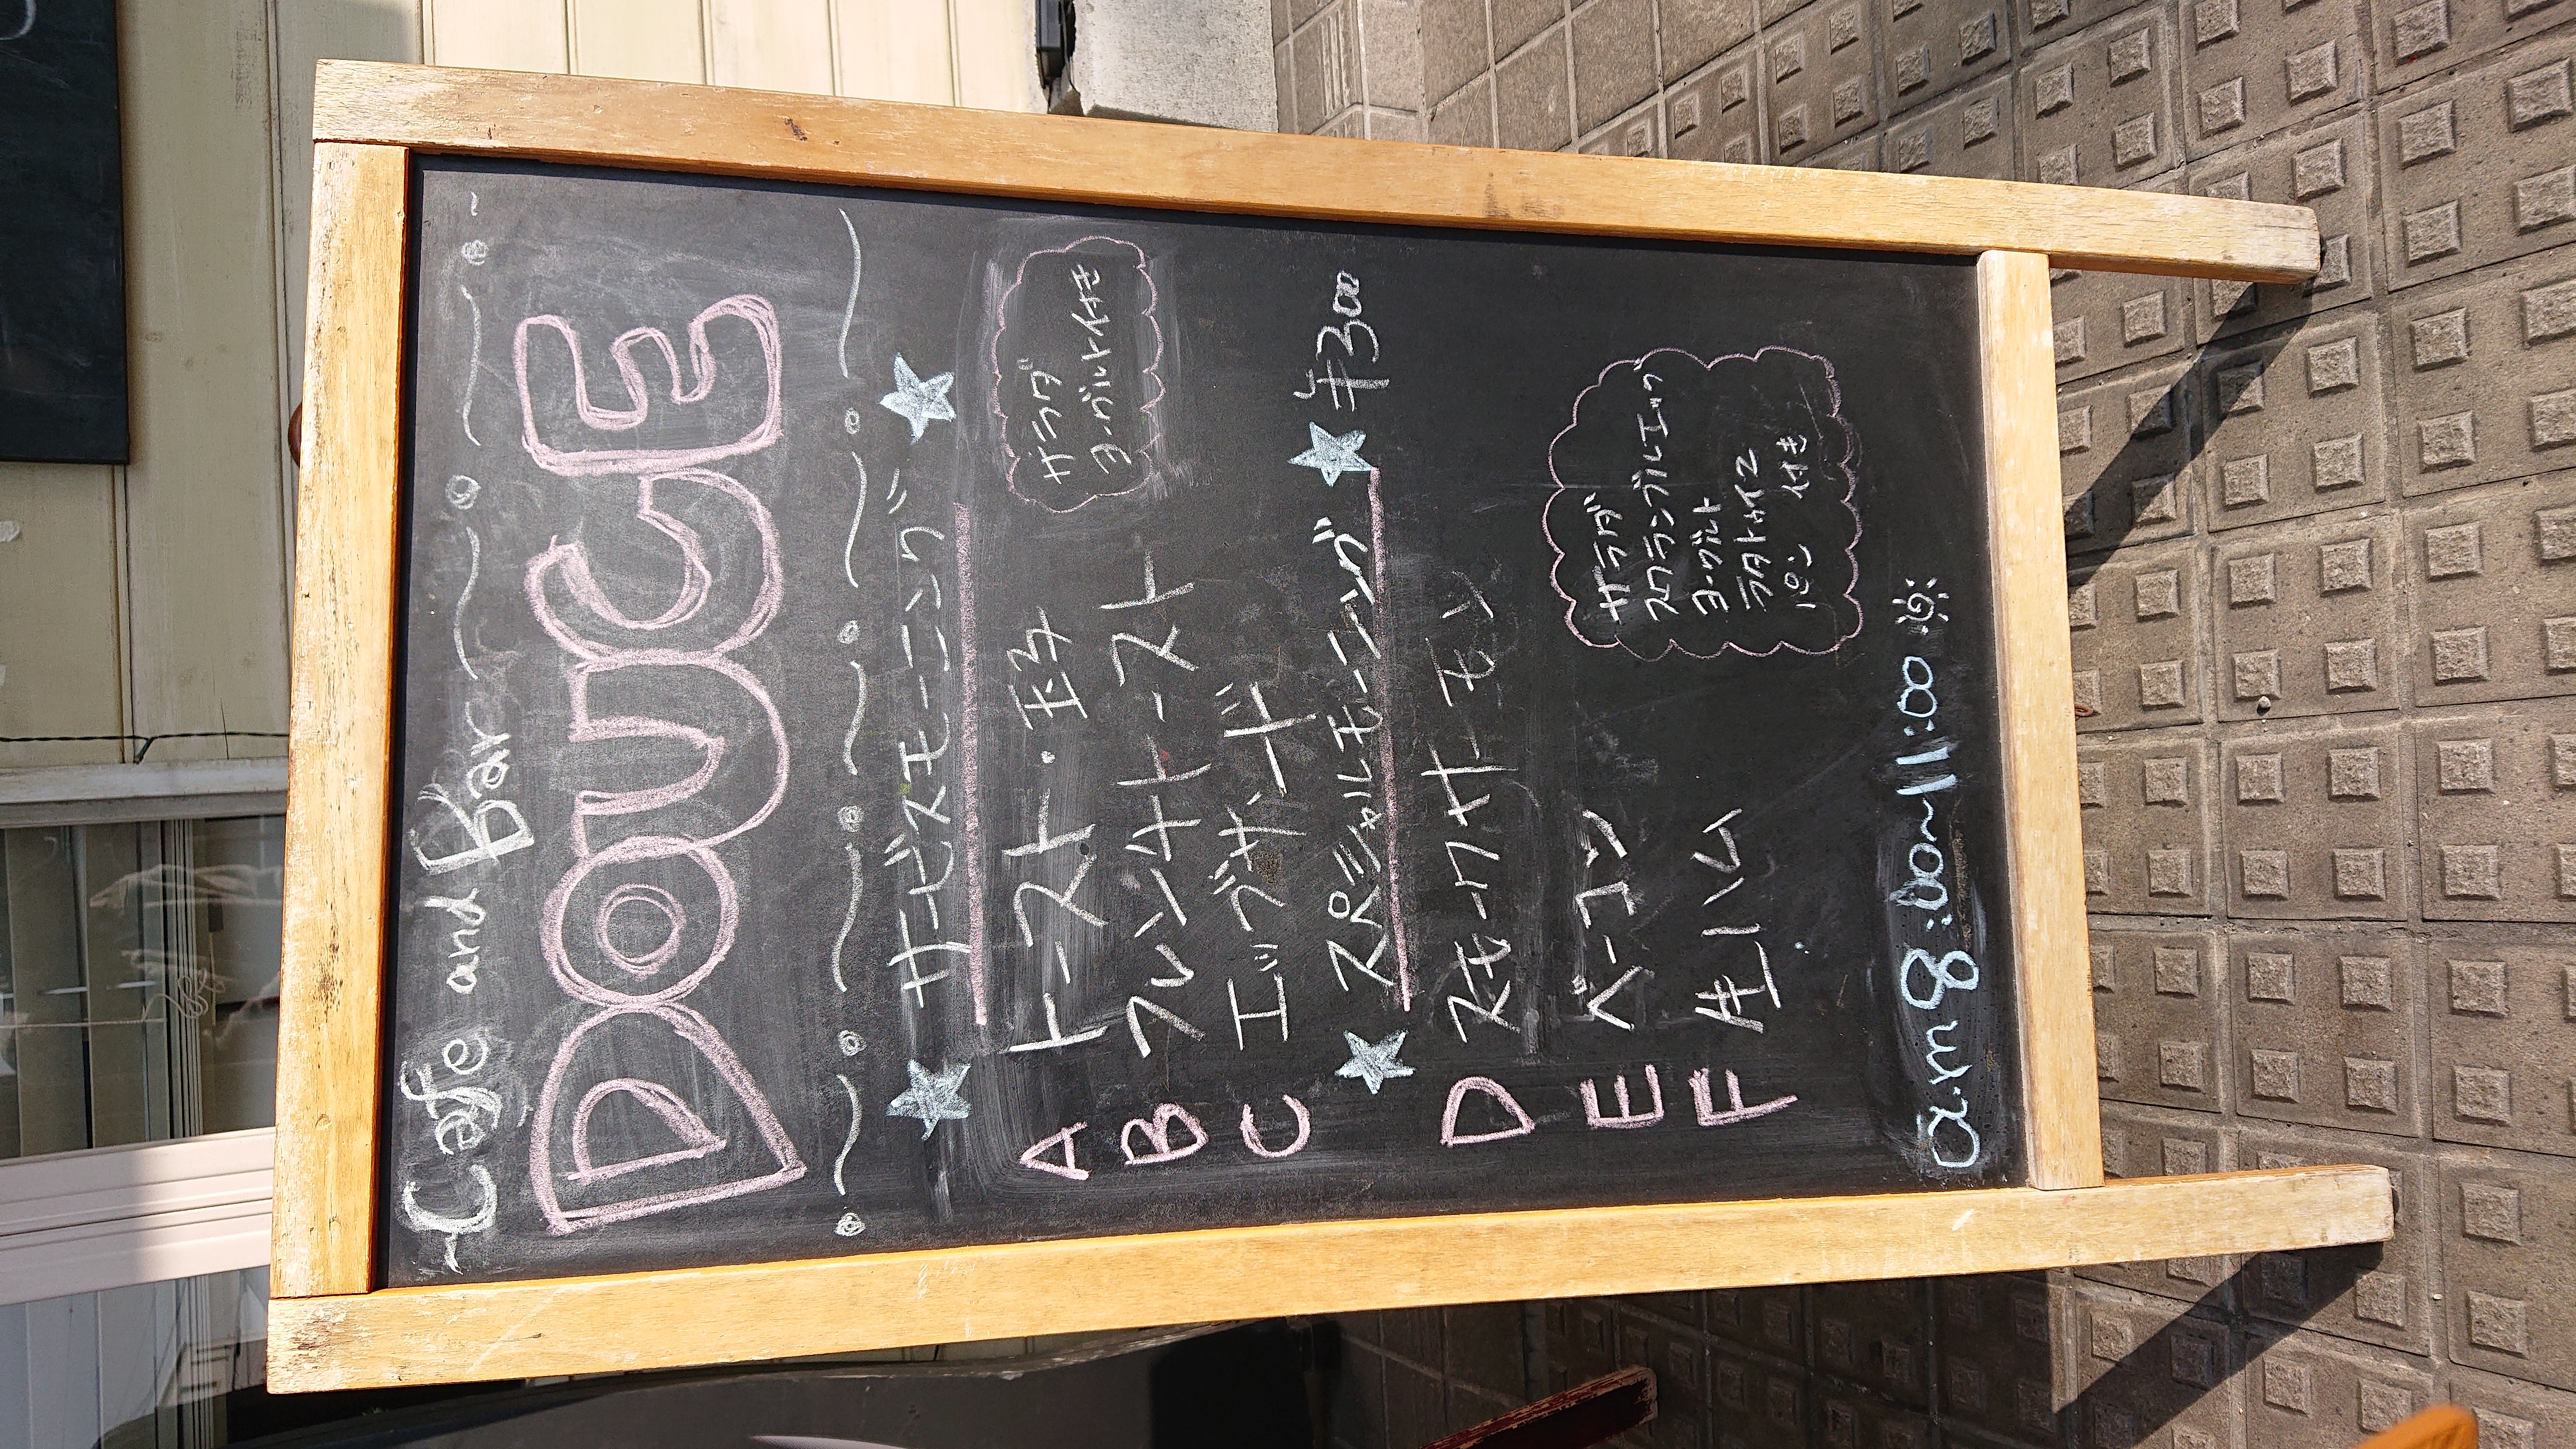 Cafe and Bar
DOUCE
サービスモーニング
A トースト・玉子
B フレンチトースト
C エッグサンド
サラダ
ヨーグルト付き
スペシャルモーニング ¥300
D スモークサーモン
E ベーコン
F 生ハム
サラダ
スクランブルエッグ
ヨーグルト
ラタトゥイユ
パン 付き
a.m 8:00~11:00